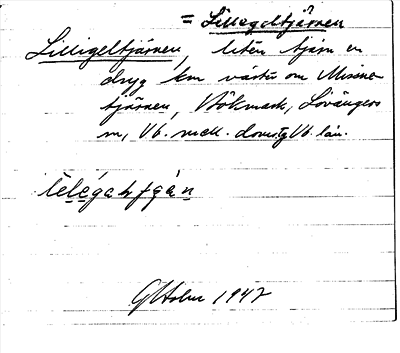 = Lillegeltjärnen
Lilligeltjärnen, liten tjärn en
dryg km väster om Missne-
tjärnen, Bökmark, Lövångers
sn, Vb. mell. doms. Vb. län.
G Holm 1947